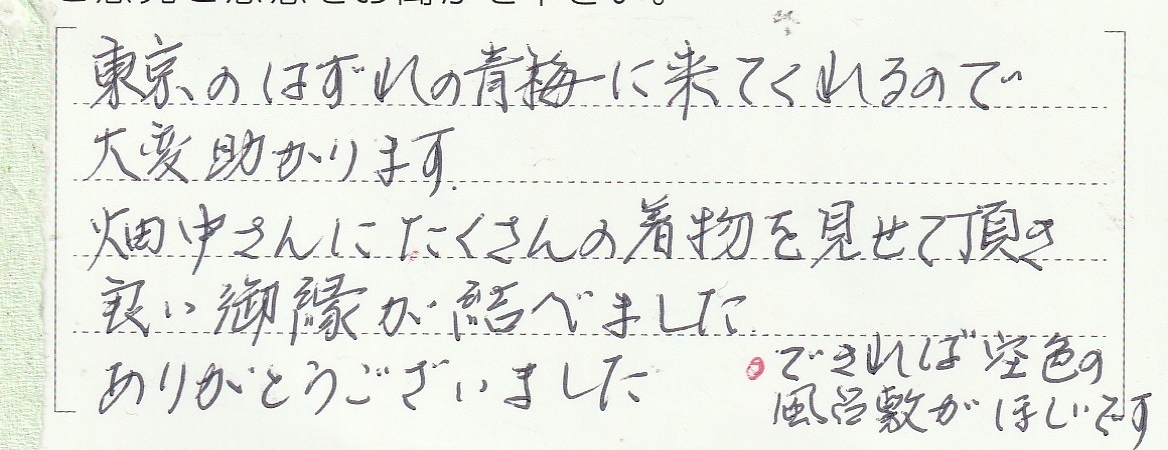 ご意見ご感想をお聞かせ下さい。
東京のはずれの青梅に来てくれるので
大変助かります.
畑中さんにたくさんの着物を見せて頂き
良い御縁が結べました.
ありがとうございました
できれば空色の
風呂敷がほしいです